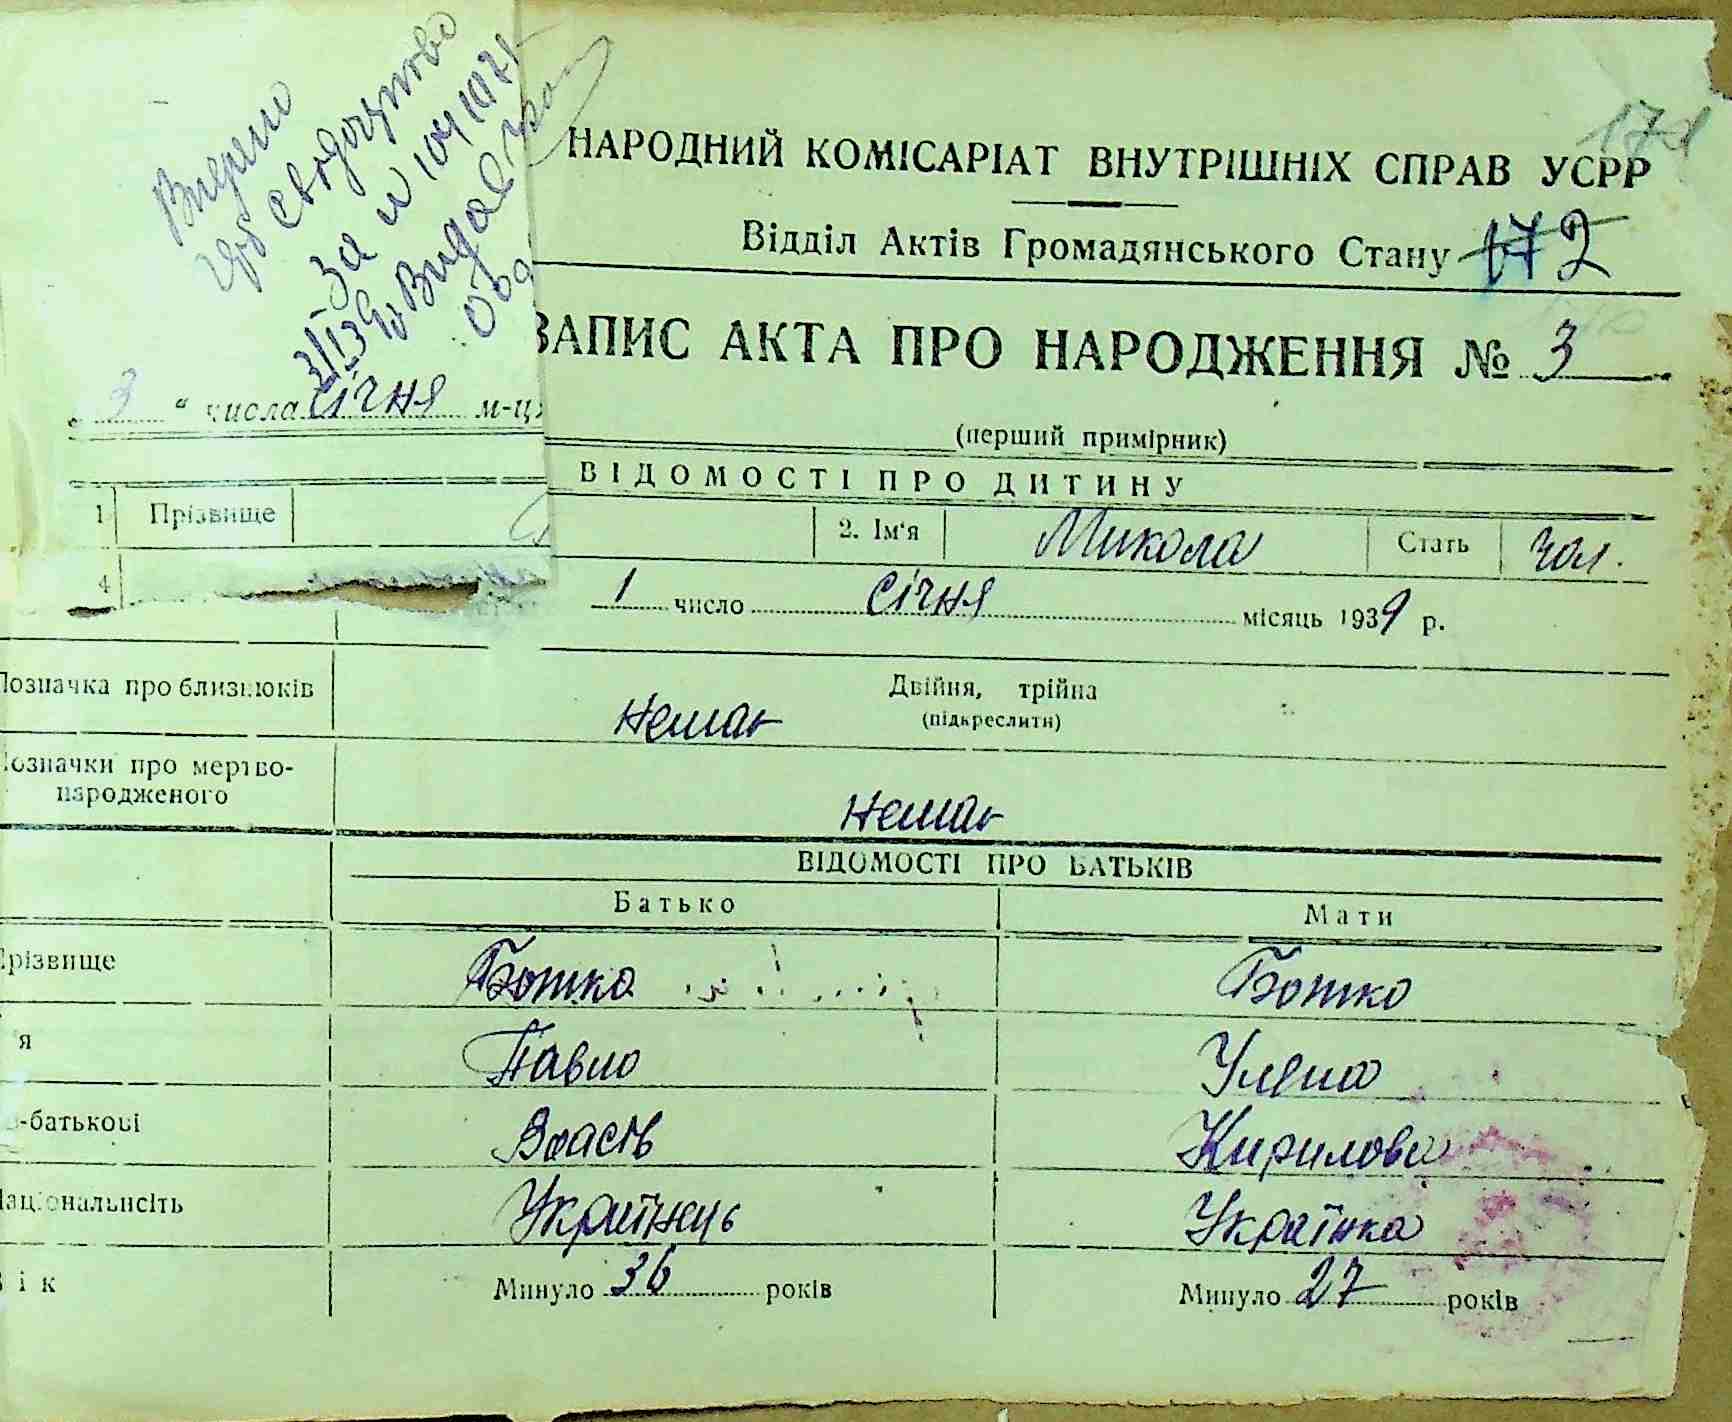 НАРОДНИЙ КОМІСАРІАТ ВНУТРІШНІХ СПРАВ УСРР
Відділ Актів Громадянського Стану 172
ЗАПИС АКТА ПРО НАРОДЖЕННЯ № 3
за № 104
Видав
3 “ числа січня м-ця
(перший примірник)
ВІДОМОСТІ ПРО ДИТИНУ
1 Прізвище 2. Ім'я Микола Стать чол.
4 1 число січня місяць 1939 р.
Позначка про близнюків Двійня, трійна
(підкреслити)
немає
Позначки про мертво-
народженого
немає
ВІДОМОСТІ ПРО БАТЬКІВ
Батько Мати
Прізвище Божко Божко
м'я Павло Улена
по-батькові Власів Кирилова
Національність Українець Українка
Вік Минуло 36 років Минуло 27 років